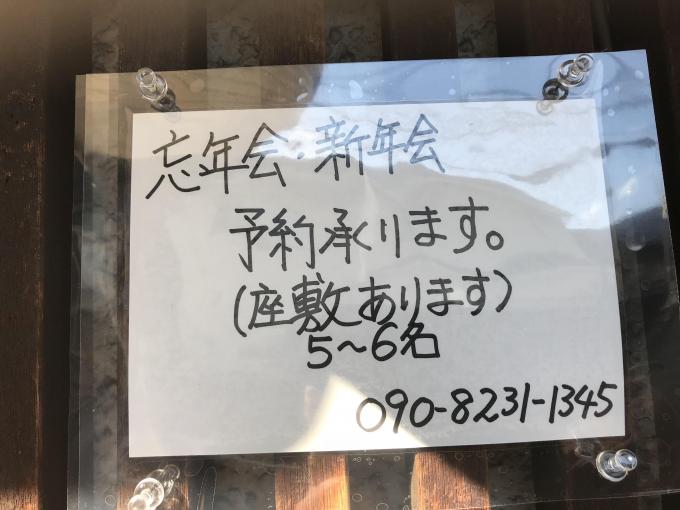 忘年会・新年会
予約承ります。
(座敷あります)
5～6名
090-8231-1345